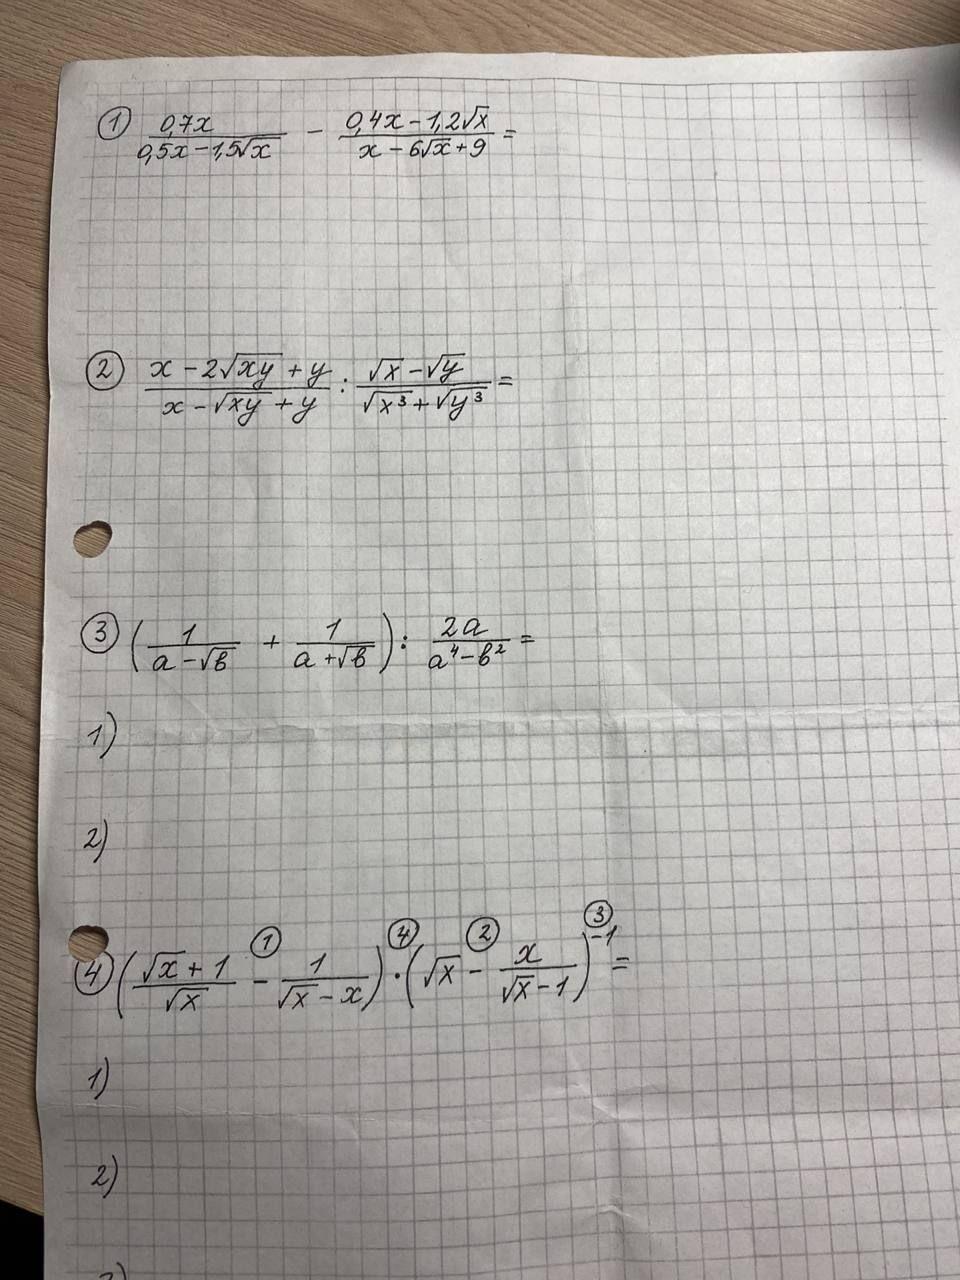 ① 0,7x/(0,5x-1,5√x) - (0,4x-1,2√x)/(x-6√x+9) =
② (x-2√(xy)+y)/(x-√(xy)+y) : (√x-√y)/(√x³+√y³) =
③ (1/(a-√b) + 1/(a+√b)) : 2a/(a⁴-b²) =
1)
2)
① ④ ② ③
④ ((√x+1)/√x - 1/(√x-x)) · (√x - x/(√x-1))⁻¹ =
1)
2)